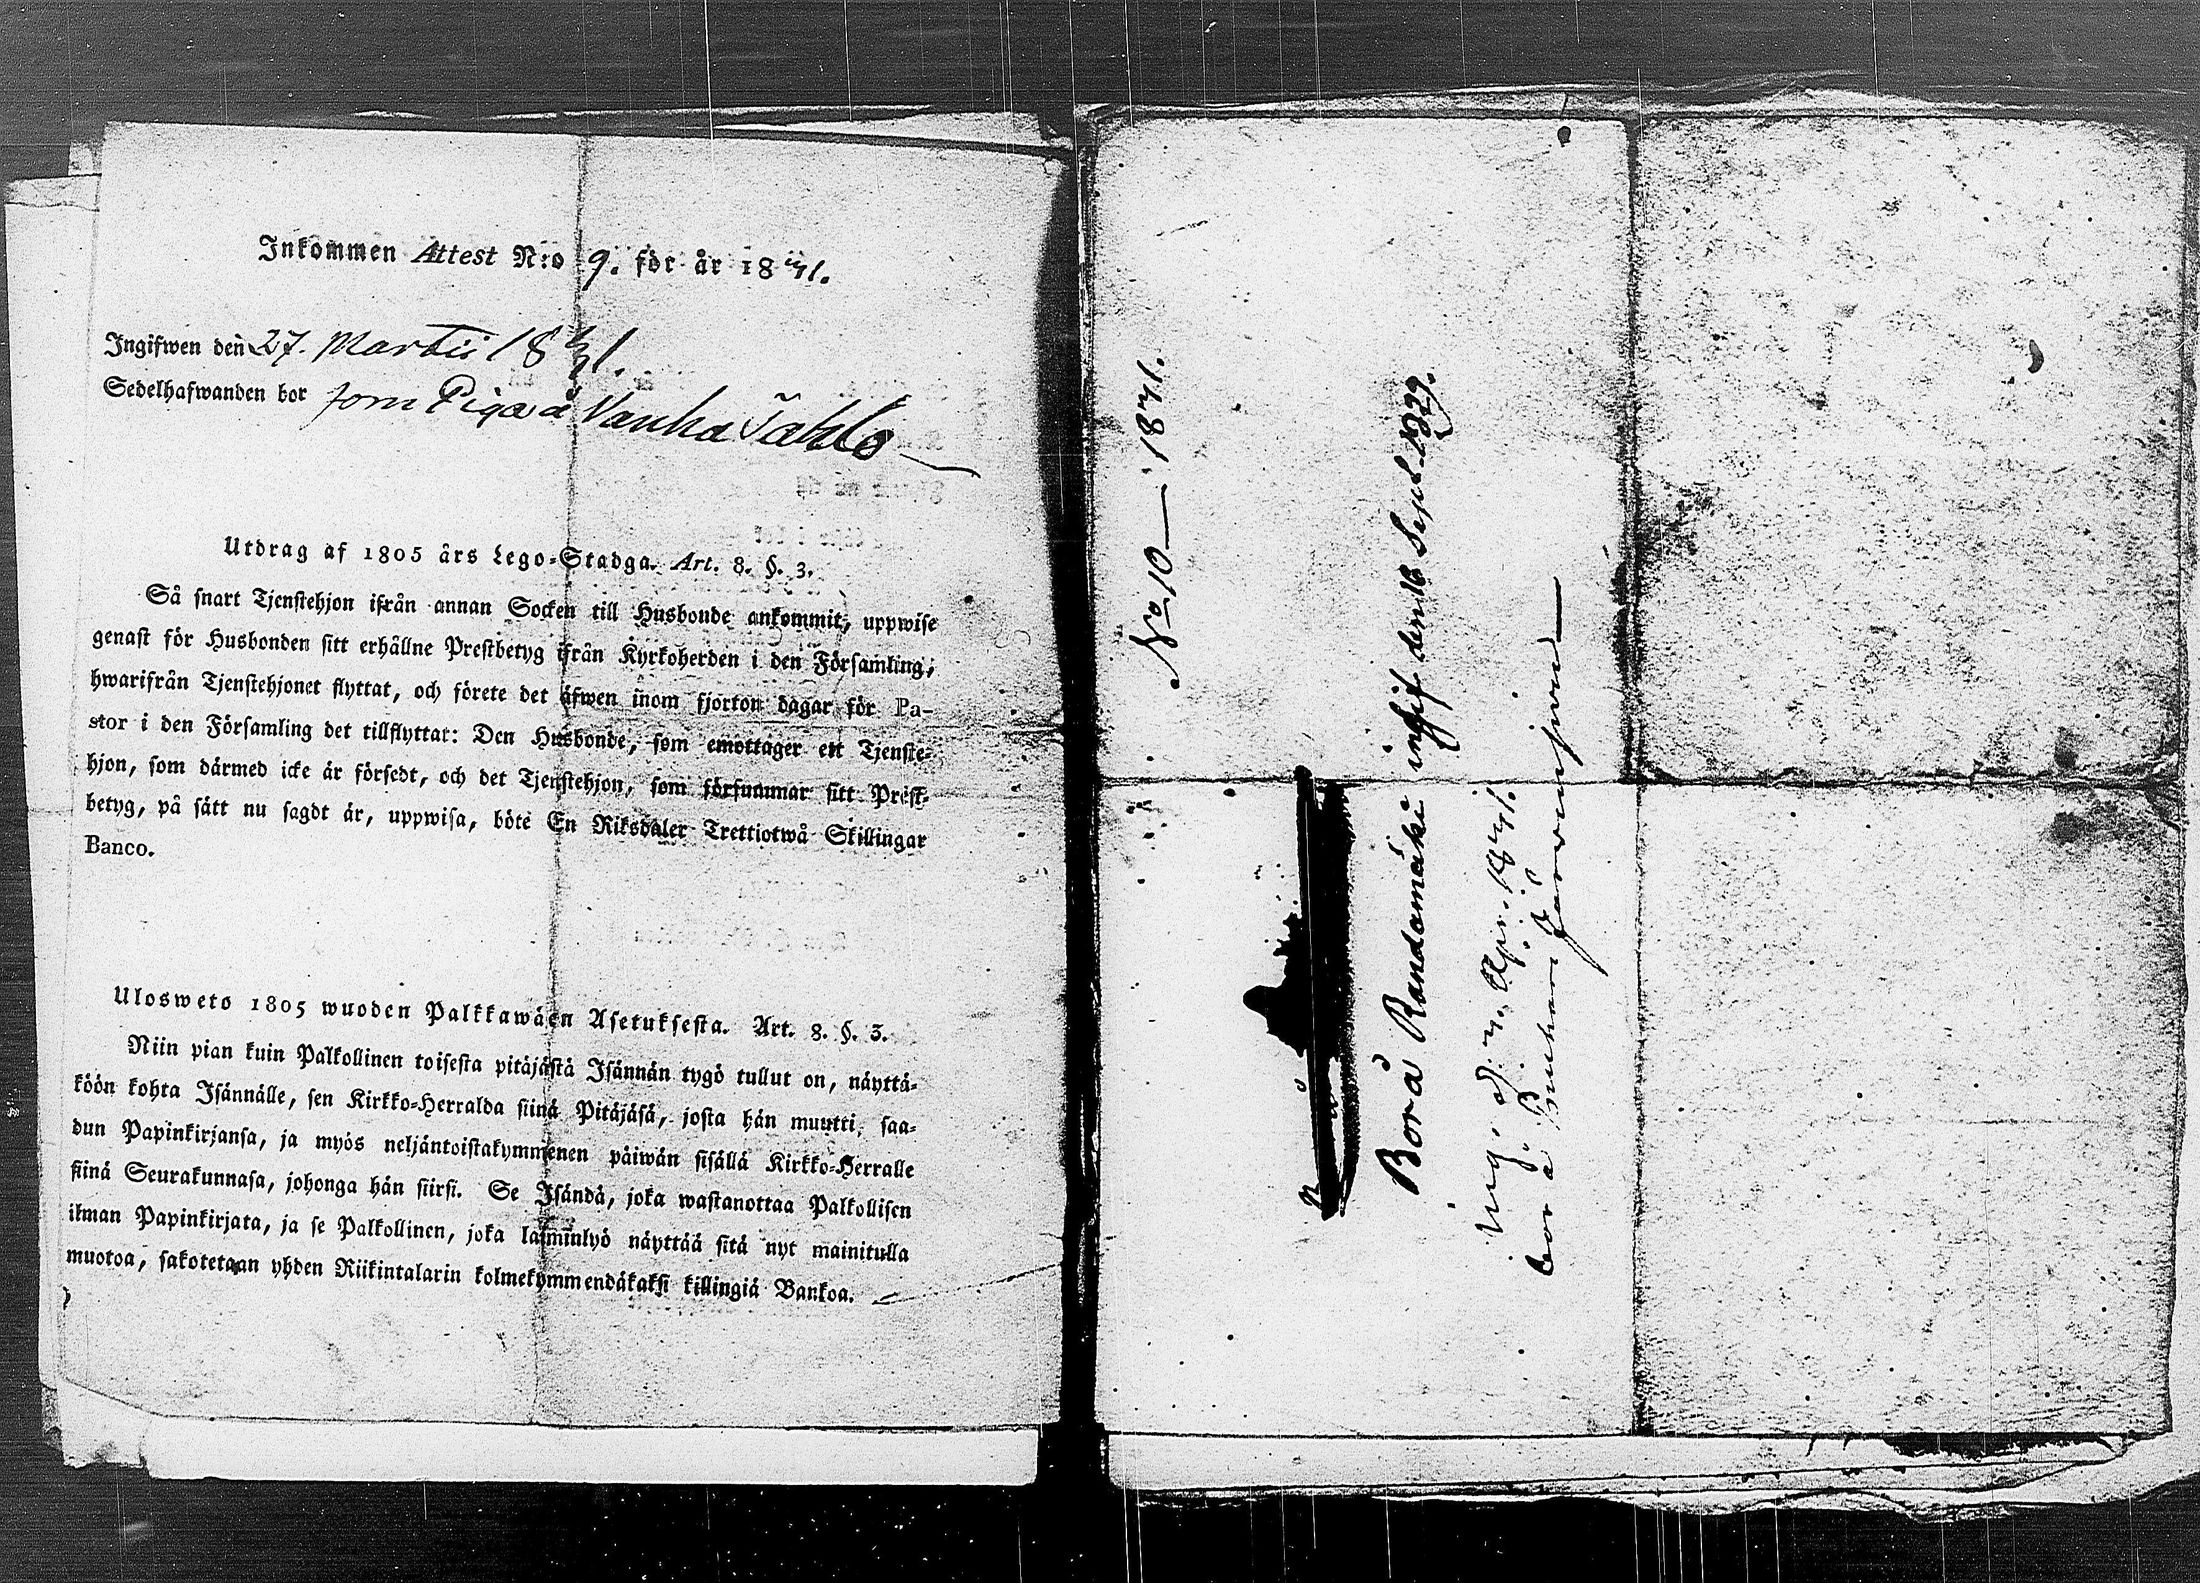 Inkommen Attest N:o 9. för år 1841.
Ingifwen den 27. Martii 1841.
Sedelhafwanden bor som Piga å Vanha Tahlo
Utdrag af 1805 års Lego-Stadga. Art. 8. §. 3.
Så snart Tjenstehjon ifrån annan Socken till Husbonde ankommit, uppwise
genast för Husbonden sitt erhållne Prestbetyg ifrån Kyrkoherden i den Församling,
hwarifrån Tjenstehjonet flyttat, och förete det äfwen inom fjorton dagar för Pa-
stor i den Församling det tillflyttat: Den Husbonde, som emottager ett Tjenste-
hjon, som därmed icke är försedt, och det Tjenstehjon, som försummar sitt Prest-
betyg, på sätt nu sagdt är, uppwisa, böte En Riksdaler Trettiotwå Skillingar
Banco.
Ulosweto 1805 wuoden Palkkawäen Asetuksesta. Art. 8. §. 3.
Niin pian kuin Palkollinen toisesta pitäjästä Isännän tygö tullut on, näyttä-
köön kohta Isännälle, sen Kirkko-Herralda siinä Pitäjäsä, josta hän muutti, saa-
dun Papinkirjansa, ja myös neljäntoistakymmenen päiwän sisällä Kirkko-Herralle
siinä Seurakunnasa, johonga hän siirsi. Se Isändä, joka wastanottaa Palkollisen
ilman Papinkirjata, ja se Palkollinen, joka laiminlyö näyttää sitä nyt mainitulla
muotoa, sakotetaan yhden Riikintalarin kolmekymmendäkaksi killingiä Bankoa.
No 10 — 1841.
Bor å Randamäki ingif. den 16 Sept. 1839.
ingif. d. 4. Apr. 1841.
bor å